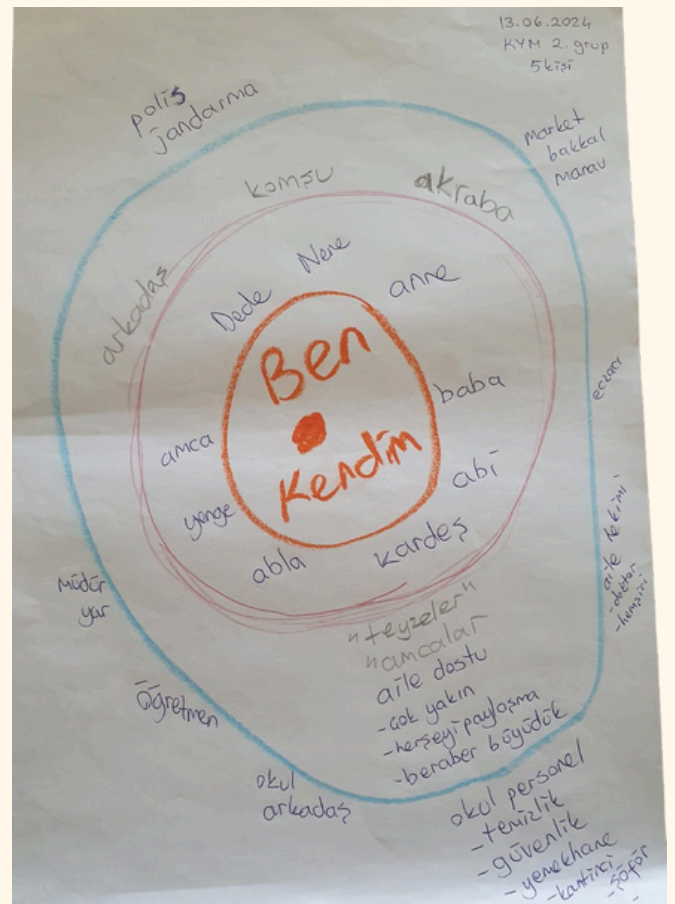 13.06.2024
KYM 2. grup
5 kişi
polis
jandarma
market
bakkal
manav
komşu
akraba
arkadaş
Nene
Dede
anne
Ben
Kendim
baba
amca
abi
yenge
abla
kardeş
eczacı
aile hekimi
-doktor
-hemşire
müdür
yar
öğretmen
okul
arkadaş
"teyzeler"
"amcalar
aile dostu
-çok yakın
-herşeyi paylaşma
-beraber büyüdük
okul personel
-temizlik
-güvenlik
-yemekhane
-kantinci
-şöför
-